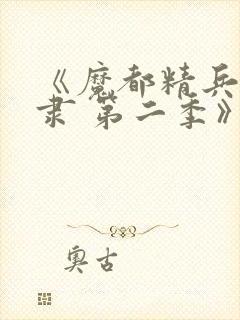 《魔都精兵
隶 第二季》
奥古